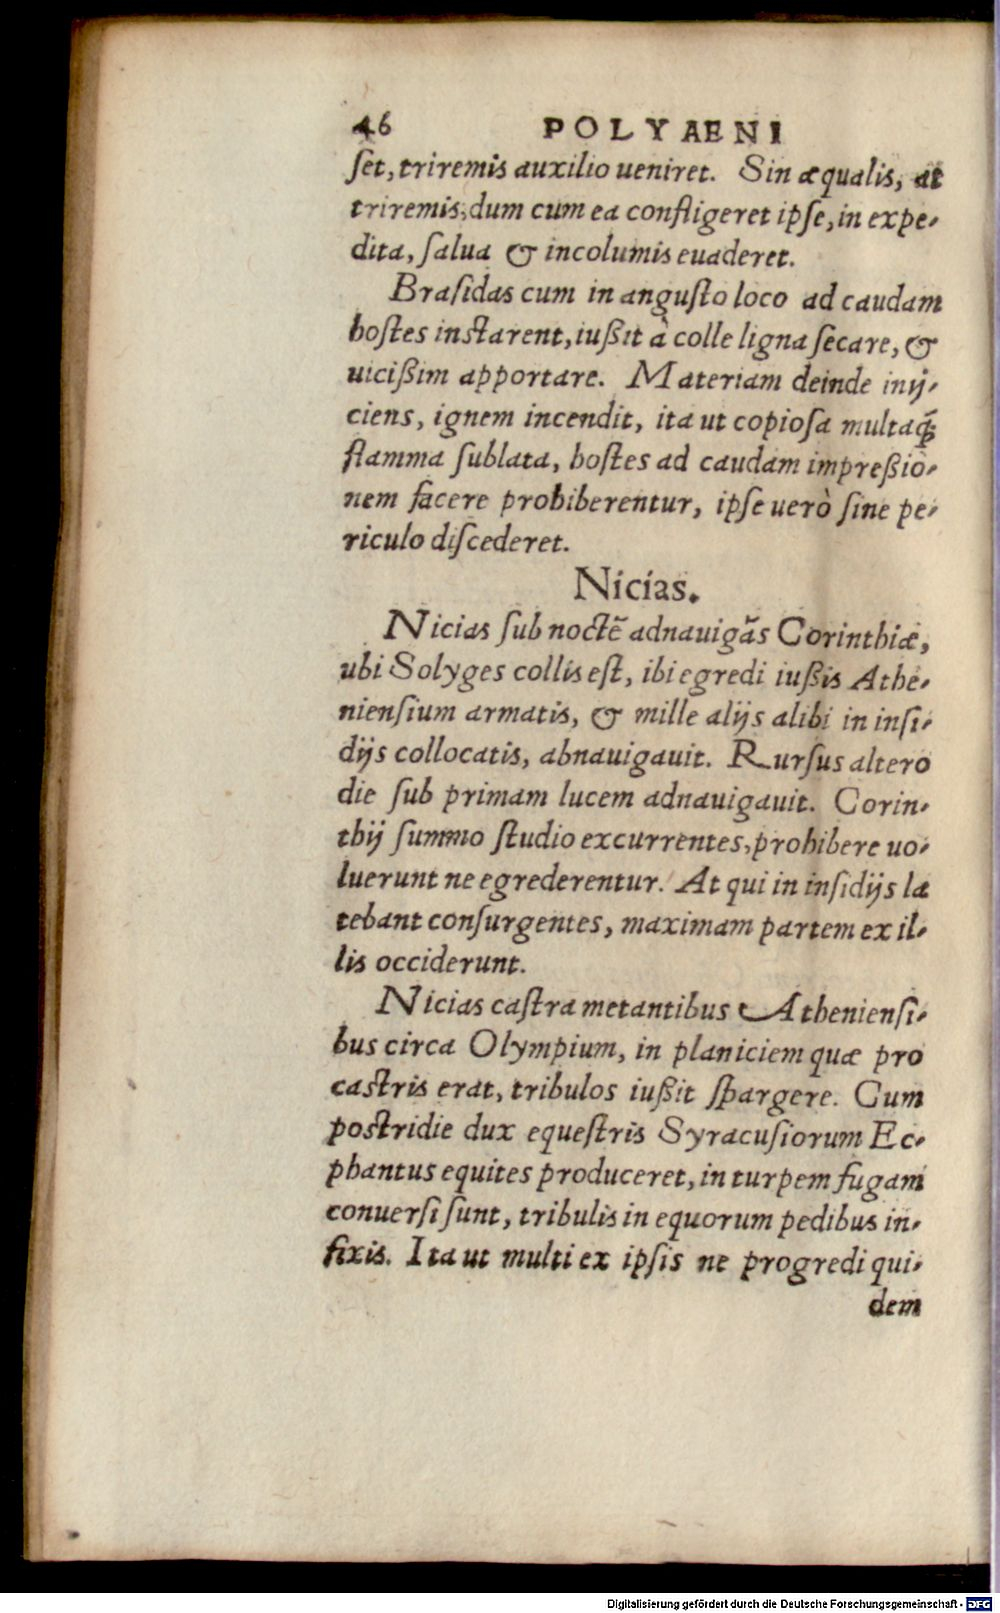 46 POLYAENI
ſet, triremis auxilio ueniret. Sin æqualis, at
triremis, dum cum ea confligeret ipſe, in expe-
dita, ſalua & incolumis euaderet.
Braſidas cum in anguſto loco ad caudam
hoſtes inſtarent, iußit à colle ligna ſecare, &
uicißim apportare. Materiam deinde inij-
ciens, ignem incendit, ita ut copioſa multaq́;
flamma ſublata, hoſtes ad caudam impreßio-
nem facere prohiberentur, ipſe uerò ſine pe-
riculo diſcederet.
Nicias.
Nicias ſub noctẽ adnauigãs Corinthiæ,
ubi Solyges collis eſt, ibi egredi iußis Athe-
nienſium armatis, & mille alijs alibi in inſi-
dijs collocatis, abnauigauit. Rurſus altero
die ſub primam lucem adnauigauit. Corin-
thij ſummo ſtudio excurrentes, prohibere uo-
luerunt ne egrederentur. At qui in inſidijs la
tebant conſurgentes, maximam partem ex il-
lis occiderunt.
Nicias caſtra metantibus Athenienſi-
bus circa Olympium, in planiciem quæ pro
caſtris erat, tribulos iußit ſpargere. Cum
poſtridie dux equeſtris Syracuſiorum Ec-
phantus equites produceret, in turpem fugam
conuerſi ſunt, tribulis in equorum pedibus in-
fixis. Ita ut multi ex ipſis ne progredi qui-
dem
Digitalisierung gefördert durch die Deutsche Forschungsgemeinschaft - DFG